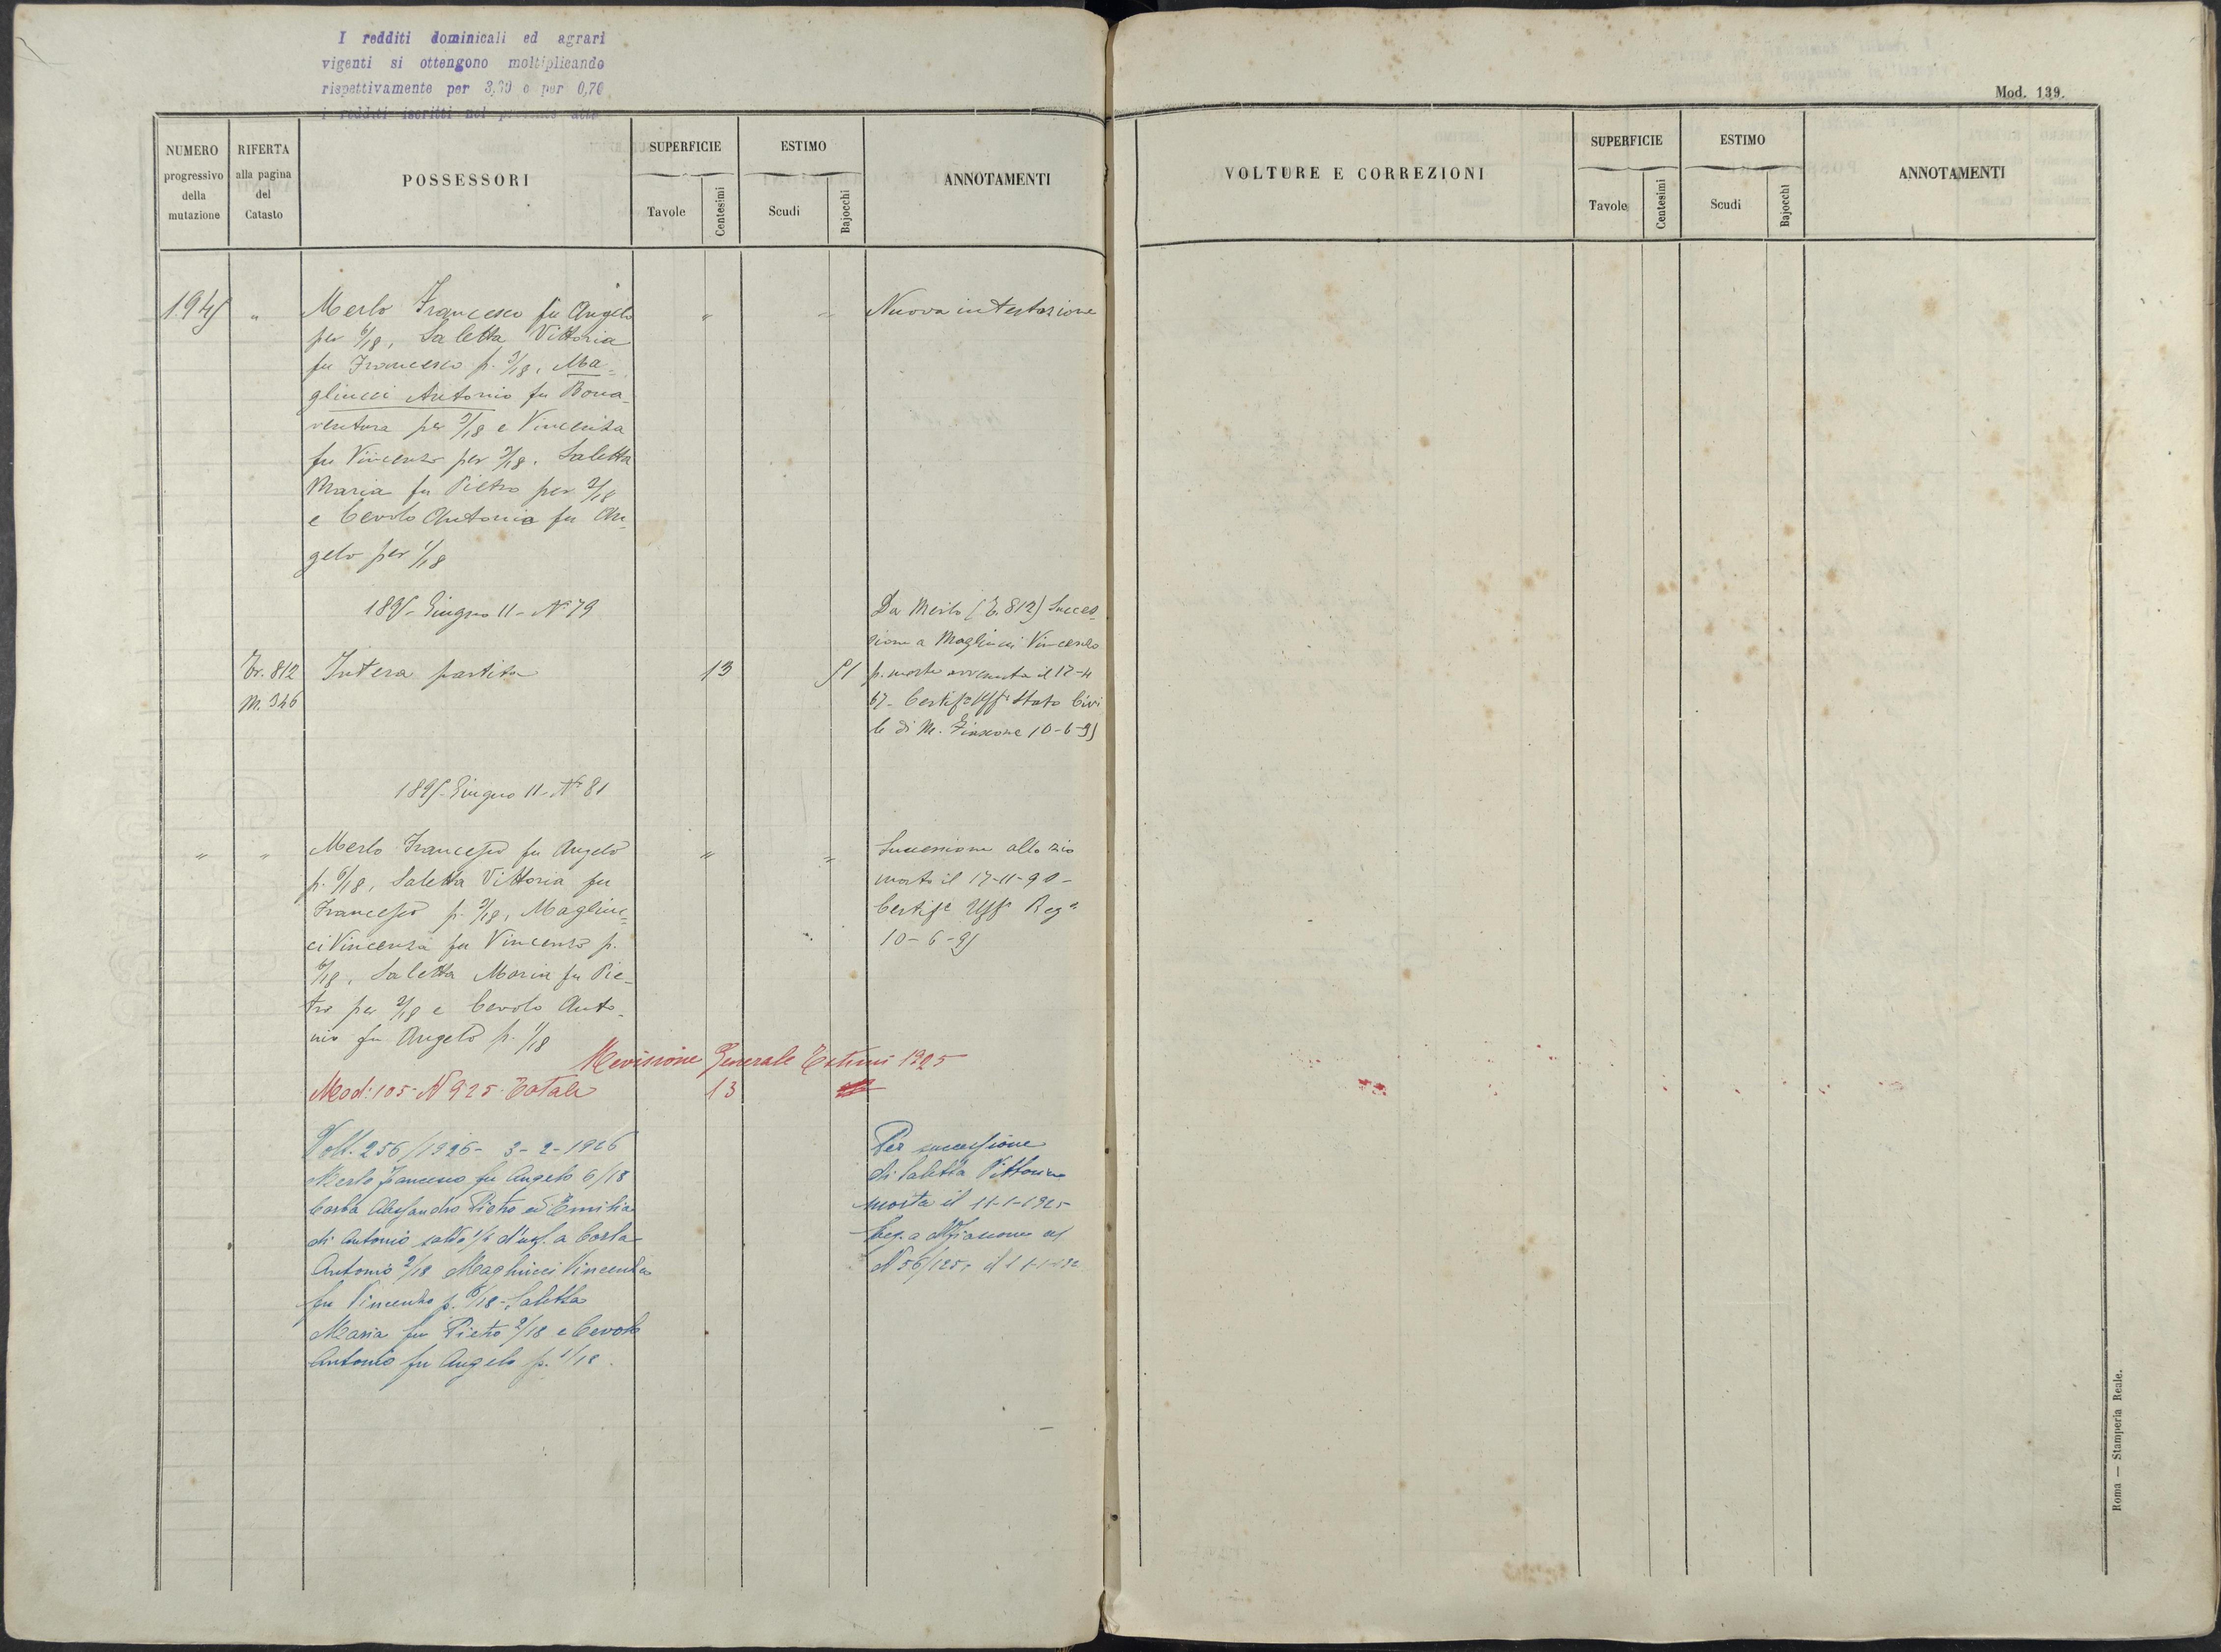 I redditi dominicali ed agrari
vigenti si ottengono moltiplicando
rispettivamente per 3,70 e per 0,70
i redditi iscritti nel presente atto
Mod. 139.
NUMERO progressivo della mutazione
RIFERTA alla pagina del Catasto
POSSESSORI
SUPERFICIE
Tavole
Centesimi
ESTIMO
Scudi
Bajocchi
ANNOTAMENTI
VOLTURE E CORREZIONI
SUPERFICIE
Tavole
Centesimi
ESTIMO
Scudi
Bajocchi
ANNOTAMENTI
1945 " Merlo Francesco fu Angelo " " Nuova intestazione
per 6/18, Saletta Vittoria
fu Francesco p. 3/18, Ma=
gliucci Antonio fu Bona-
ventura per 3/18 e Vincenza
fu Vincenzo per 3/18. Saletta
Maria fu Pietro per 2/18
e Cevolo Antonio fu An-
gelo per 1/18
1895 - Giugno 11 - N° 79
Da Merlo (Tr. 812) Succes-
sione a Magliucci Vincenzo
Tr. 812 Intera partita 13 51 p. morte avvenuta il 17-4
M. 346
67 - Certifo Uffo Stato Civi
le di M. Fiascone 10-6-95
1895 - Giugno 11 - N° 81
" " Merlo Francesco fu Angelo " " Successione allo zio
p. 6/18, Saletta Vittoria fu morto il 17-11-90 -
Francesco p. 3/18, Magliuc= Certifo Uffo Rego
ci Vincenza fu Vincenzo p. 10-6-95
6/18, Saletta Maria fu Pie-
tro per 2/18 e Cevolo Anto-
nio fu Angelo p. 1/18
Revisione Generale Estimi 1925
Mod: 105 - N 925 - Totale 13
Volt. 256/1926 - 3-2-1926 Per successione
Merlo Francesco fu Angelo 6/18 di Saletta Vittoria
Corba Alessandro Pietro ed Emilia morta il 11-1-1925
di Antonio salvo d'usf. a Corba
Reg. a Mfiascone al
Antonio 3/18 Magliucci Vincenza N 56/125
fu Vincenzo p. 6/18 - Saletta
Maria fu Pietro 2/18 e Cevolo
Antonio fu Angelo p. 1/18.
Roma — Stamperia Reale.